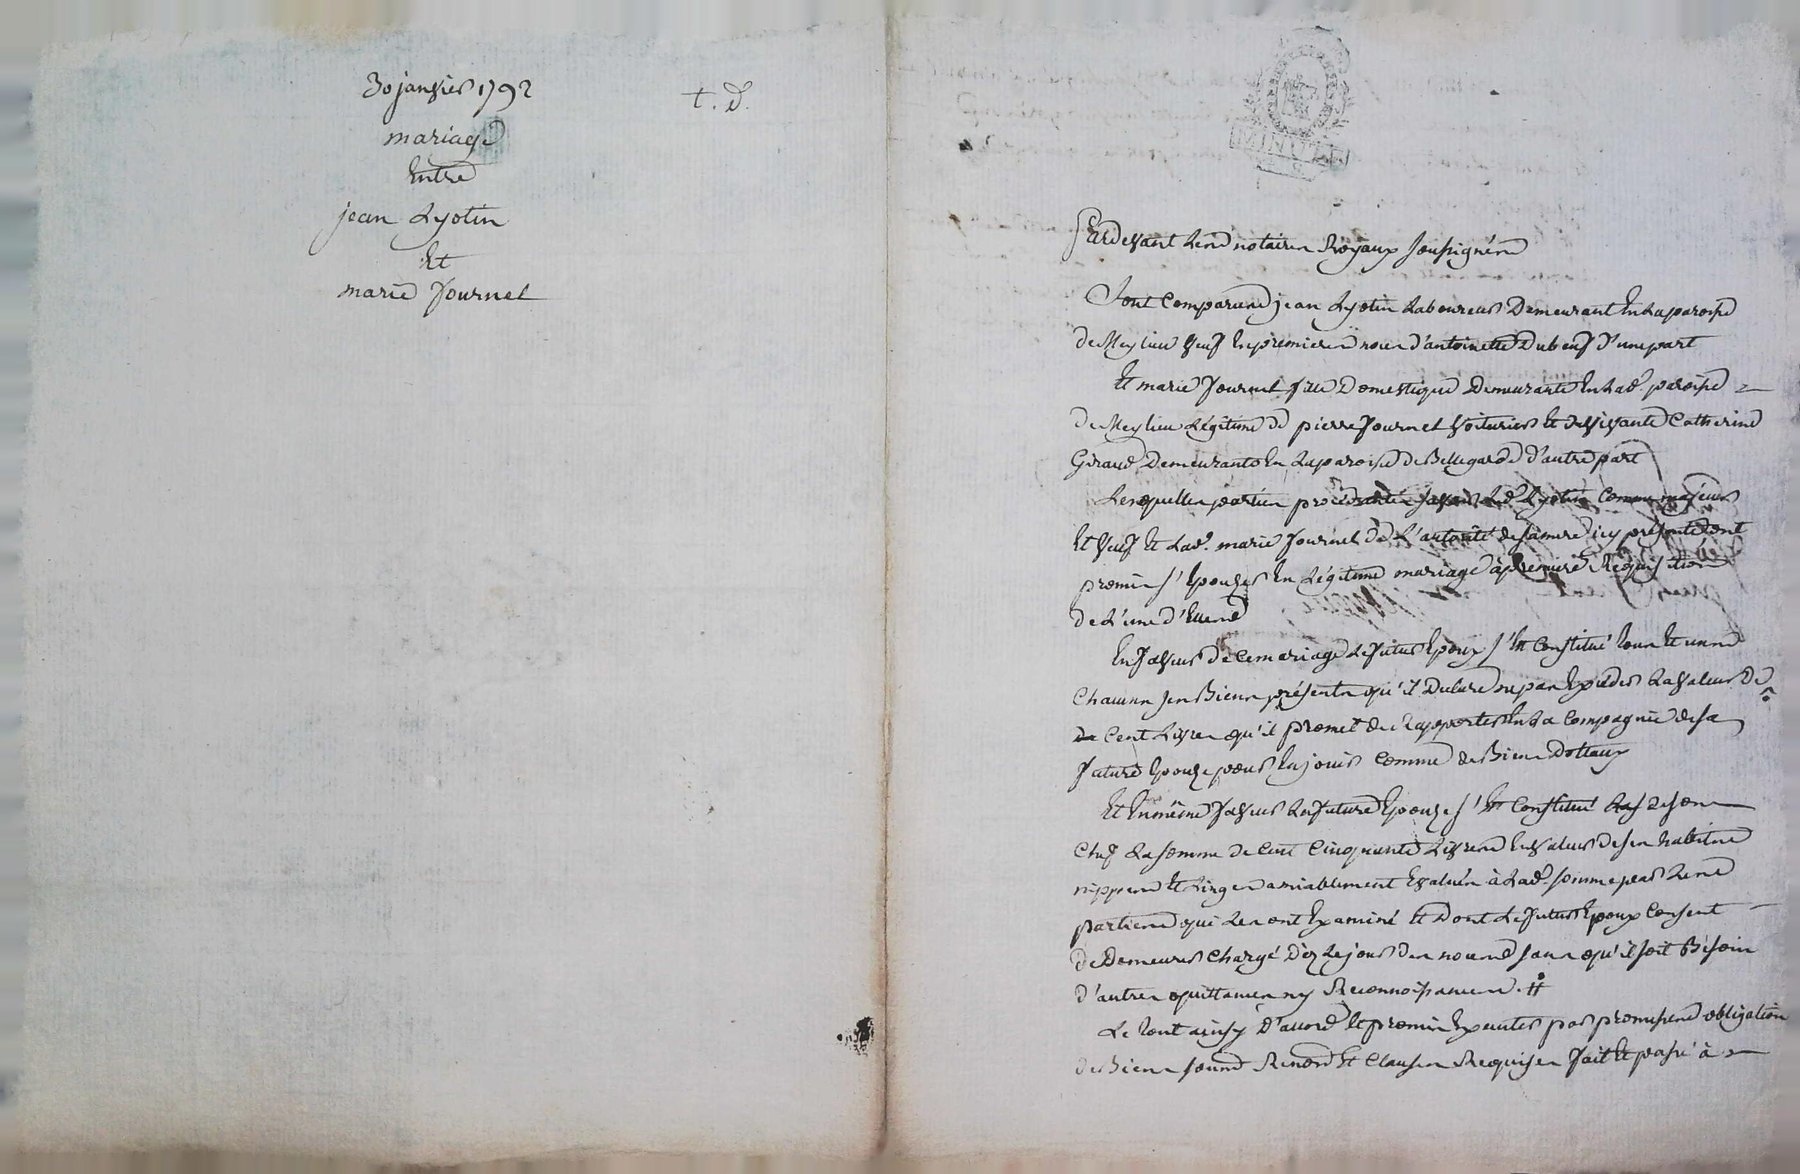 30 janvier 1792
mariage
Entre
jean Lyotin
Et
marie Journel
t. d.
MINUTE
Pardevant Les notaires Royaux soussignés
Sont Comparus jean Lyotin Laboureur Demeurant En La paroisse
de Meylieu Veuf En premieres noces d'antoinette Dubeuf d'une part
Et marie Journel fille Domestique Demeurante En Lad. paroisse
de Meylieu Légitime de pierre Journel Voiturier Et de Vivante Catherine
Giraud Demeurants En La paroisse de Bellegarde d'autre part
Lesquelles parties procedantes savoir Led. Lyotin Comme majeur
Et Veuf Et Lad. marie Journel de L'autorité de sa mere icy présente ont
promis s'Epouzer En Légitime mariage à premiere Réquisition
de L'une d'Elles
En faveur de ce mariage Le futur Epoux s'Est Constitué tous Et uns
Chacuns ses Biens présents qu'il Declare ne pas Exceder La Valeur De
Cent Livres qu'il promet de Rapporter En La Compagnie de sa
future Epouze pour En jouir Comme de Biens Dottaux
Et En même faveur La future Epouze s'Est Constitué de son
Chef La somme de Cent Cinquante Livres En Valeur de ses habits
nippes Et Linges amiablement Evalués à Lad. somme par Les
parties qui Les ont Examiné Et Dont Le futur Epoux Consent
de Demeurer Chargé Dèz Le jour des noces sans qu'il soit Besoin
d'autres quittances ny Reconnoissances. #
Le tout ainsy D'accord Et promis Executer par promesses obligation
de Biens soums. Renon. Et Clauses Requises fait Et passé à